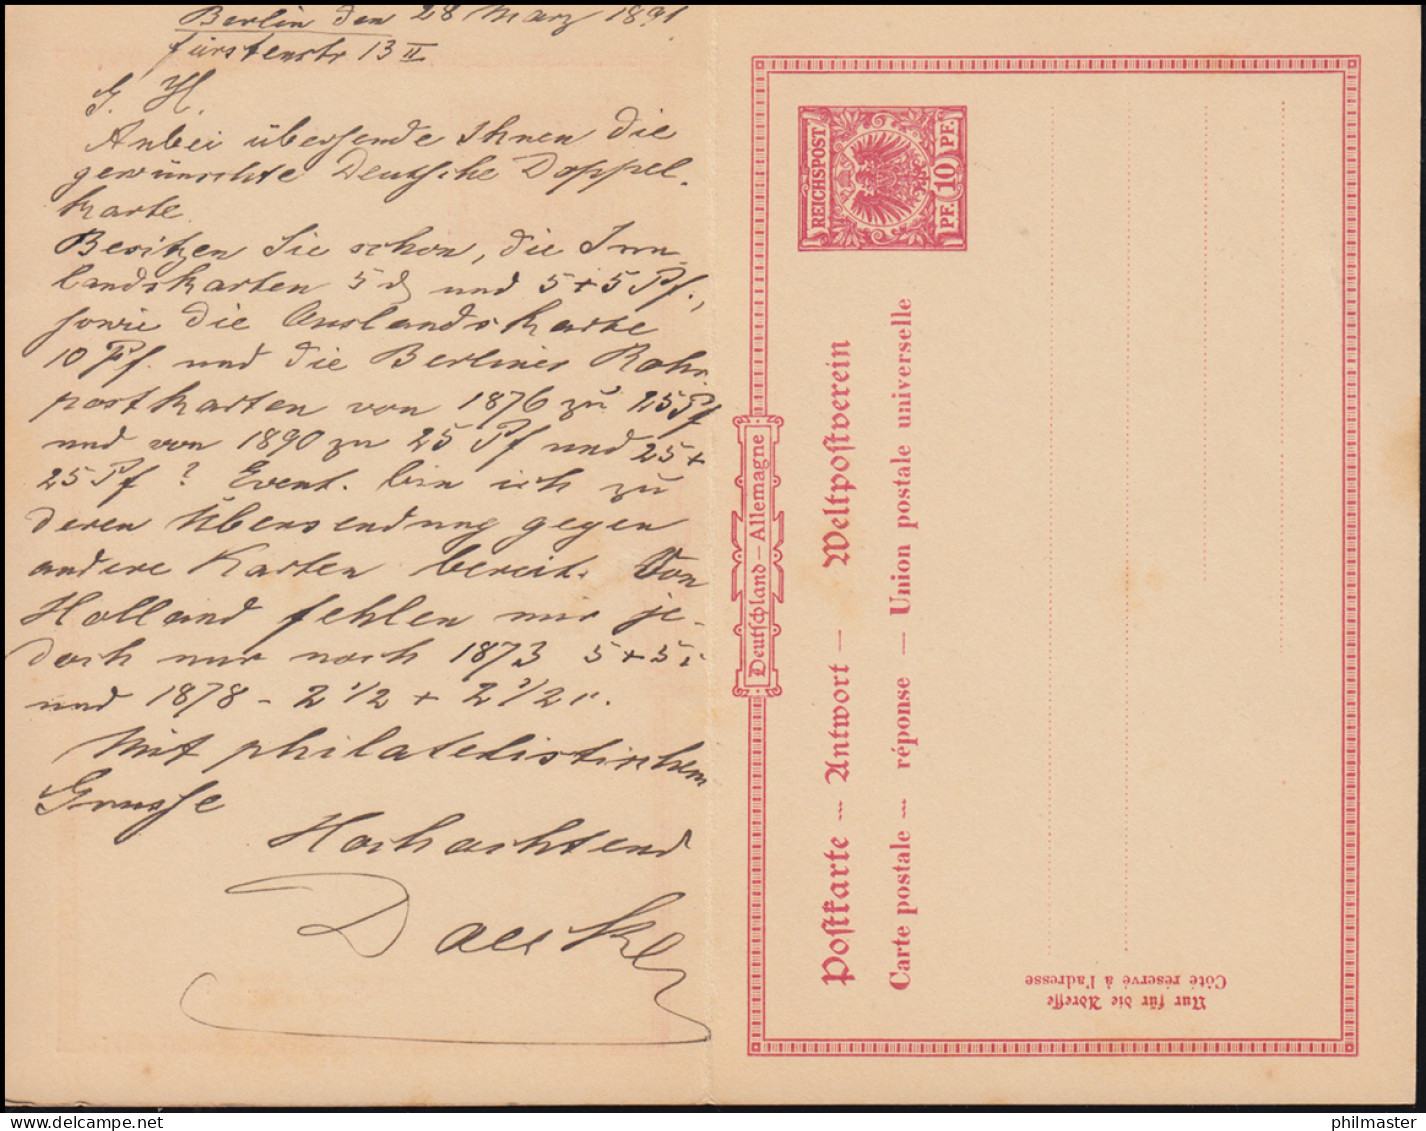 Berlin den 28 März 1891
Fürstenstr 13 II
G. H.
Anbei übersende Ihnen die
gewünschte Deutsche Doppel-
karte.
Besitzen Sie schon, die Inn-
landskarten 5 ₰ und 5+5 Pf.,
sowie die Auslandskarte
10 Pf. und die Berliner Rohr-
postkarten von 1876 zu 25 Pf
und von 1890 zu 25 Pf und 25+
25 Pf ? Event. bin ich zu
deren Übersendung gegen
andere Karten bereit. Von
Holland fehlen mir je-
doch nur noch 1873 5+5
und 1878 - 2 1/2 + 2 1/2
Mit philatelistischem
Grusse
Hochachtend
REICHSPOST
PF. 10 PF.
Deutschland — Allemagne
Postkarte -- Antwort — Weltpostverein
Carte postale --- réponse — Union postale universelle
Nur für die Adresse
Côté réservé à l'adresse
philmaster